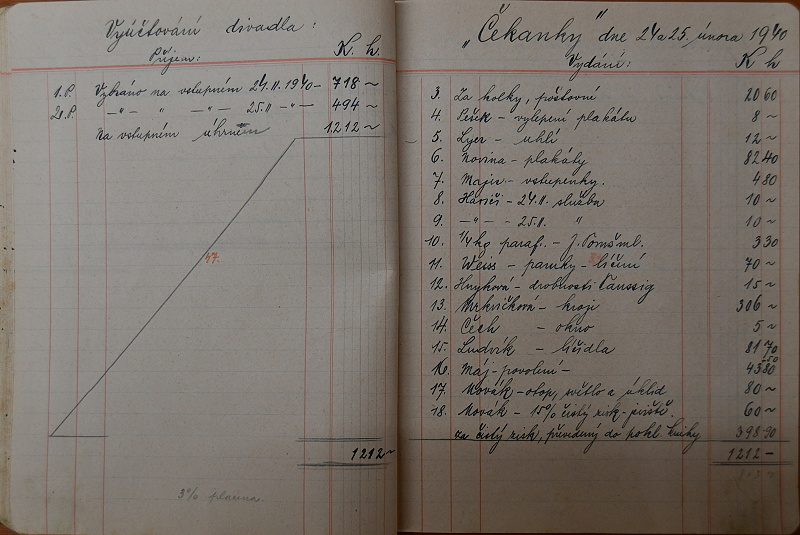 Vyúčtování divadla:
Příjem: K. h.
1.P. Vybráno na vstupném 24.II.1940 - 718 ~
2.P. -"- " -"- 25.II -"- 494 ~
Na vstupném úhrnem 1212 ~
47.
1212 ~
3% platina.
„Čekanky" dne 24 a 25. února 1940
Vydání: K h
3. Za kolky, poštovní 20 60
4. Pešek - vylepení plakátu 8 ~
5. Lyer - uhlí 12 ~
6. Novina - plakáty 82 40
7. Majer - vstupenky. 4 80
8. Hasiči - 24.II. služba 10 ~
9. -"- - 25.II. " 10 ~
10. 1/4 kg paraf. - J. 3 30
11. Weiss - paruky - líčení 70 ~
12. Hnyková - drobnosti Taussig 15 ~
13. Mrkvičková - kroje 306 ~
14. Čech - okno 5 ~
15. Ludvík - líčidla 81 70
16. Máj - povolení - 43 80
17. Novák - otop, světlo a úklid 80 ~
18. Novák - 15% čistý zisk - jeviště. 60 ~
za čistý zisk, převedený do pokl. knihy 398 90
1212 -